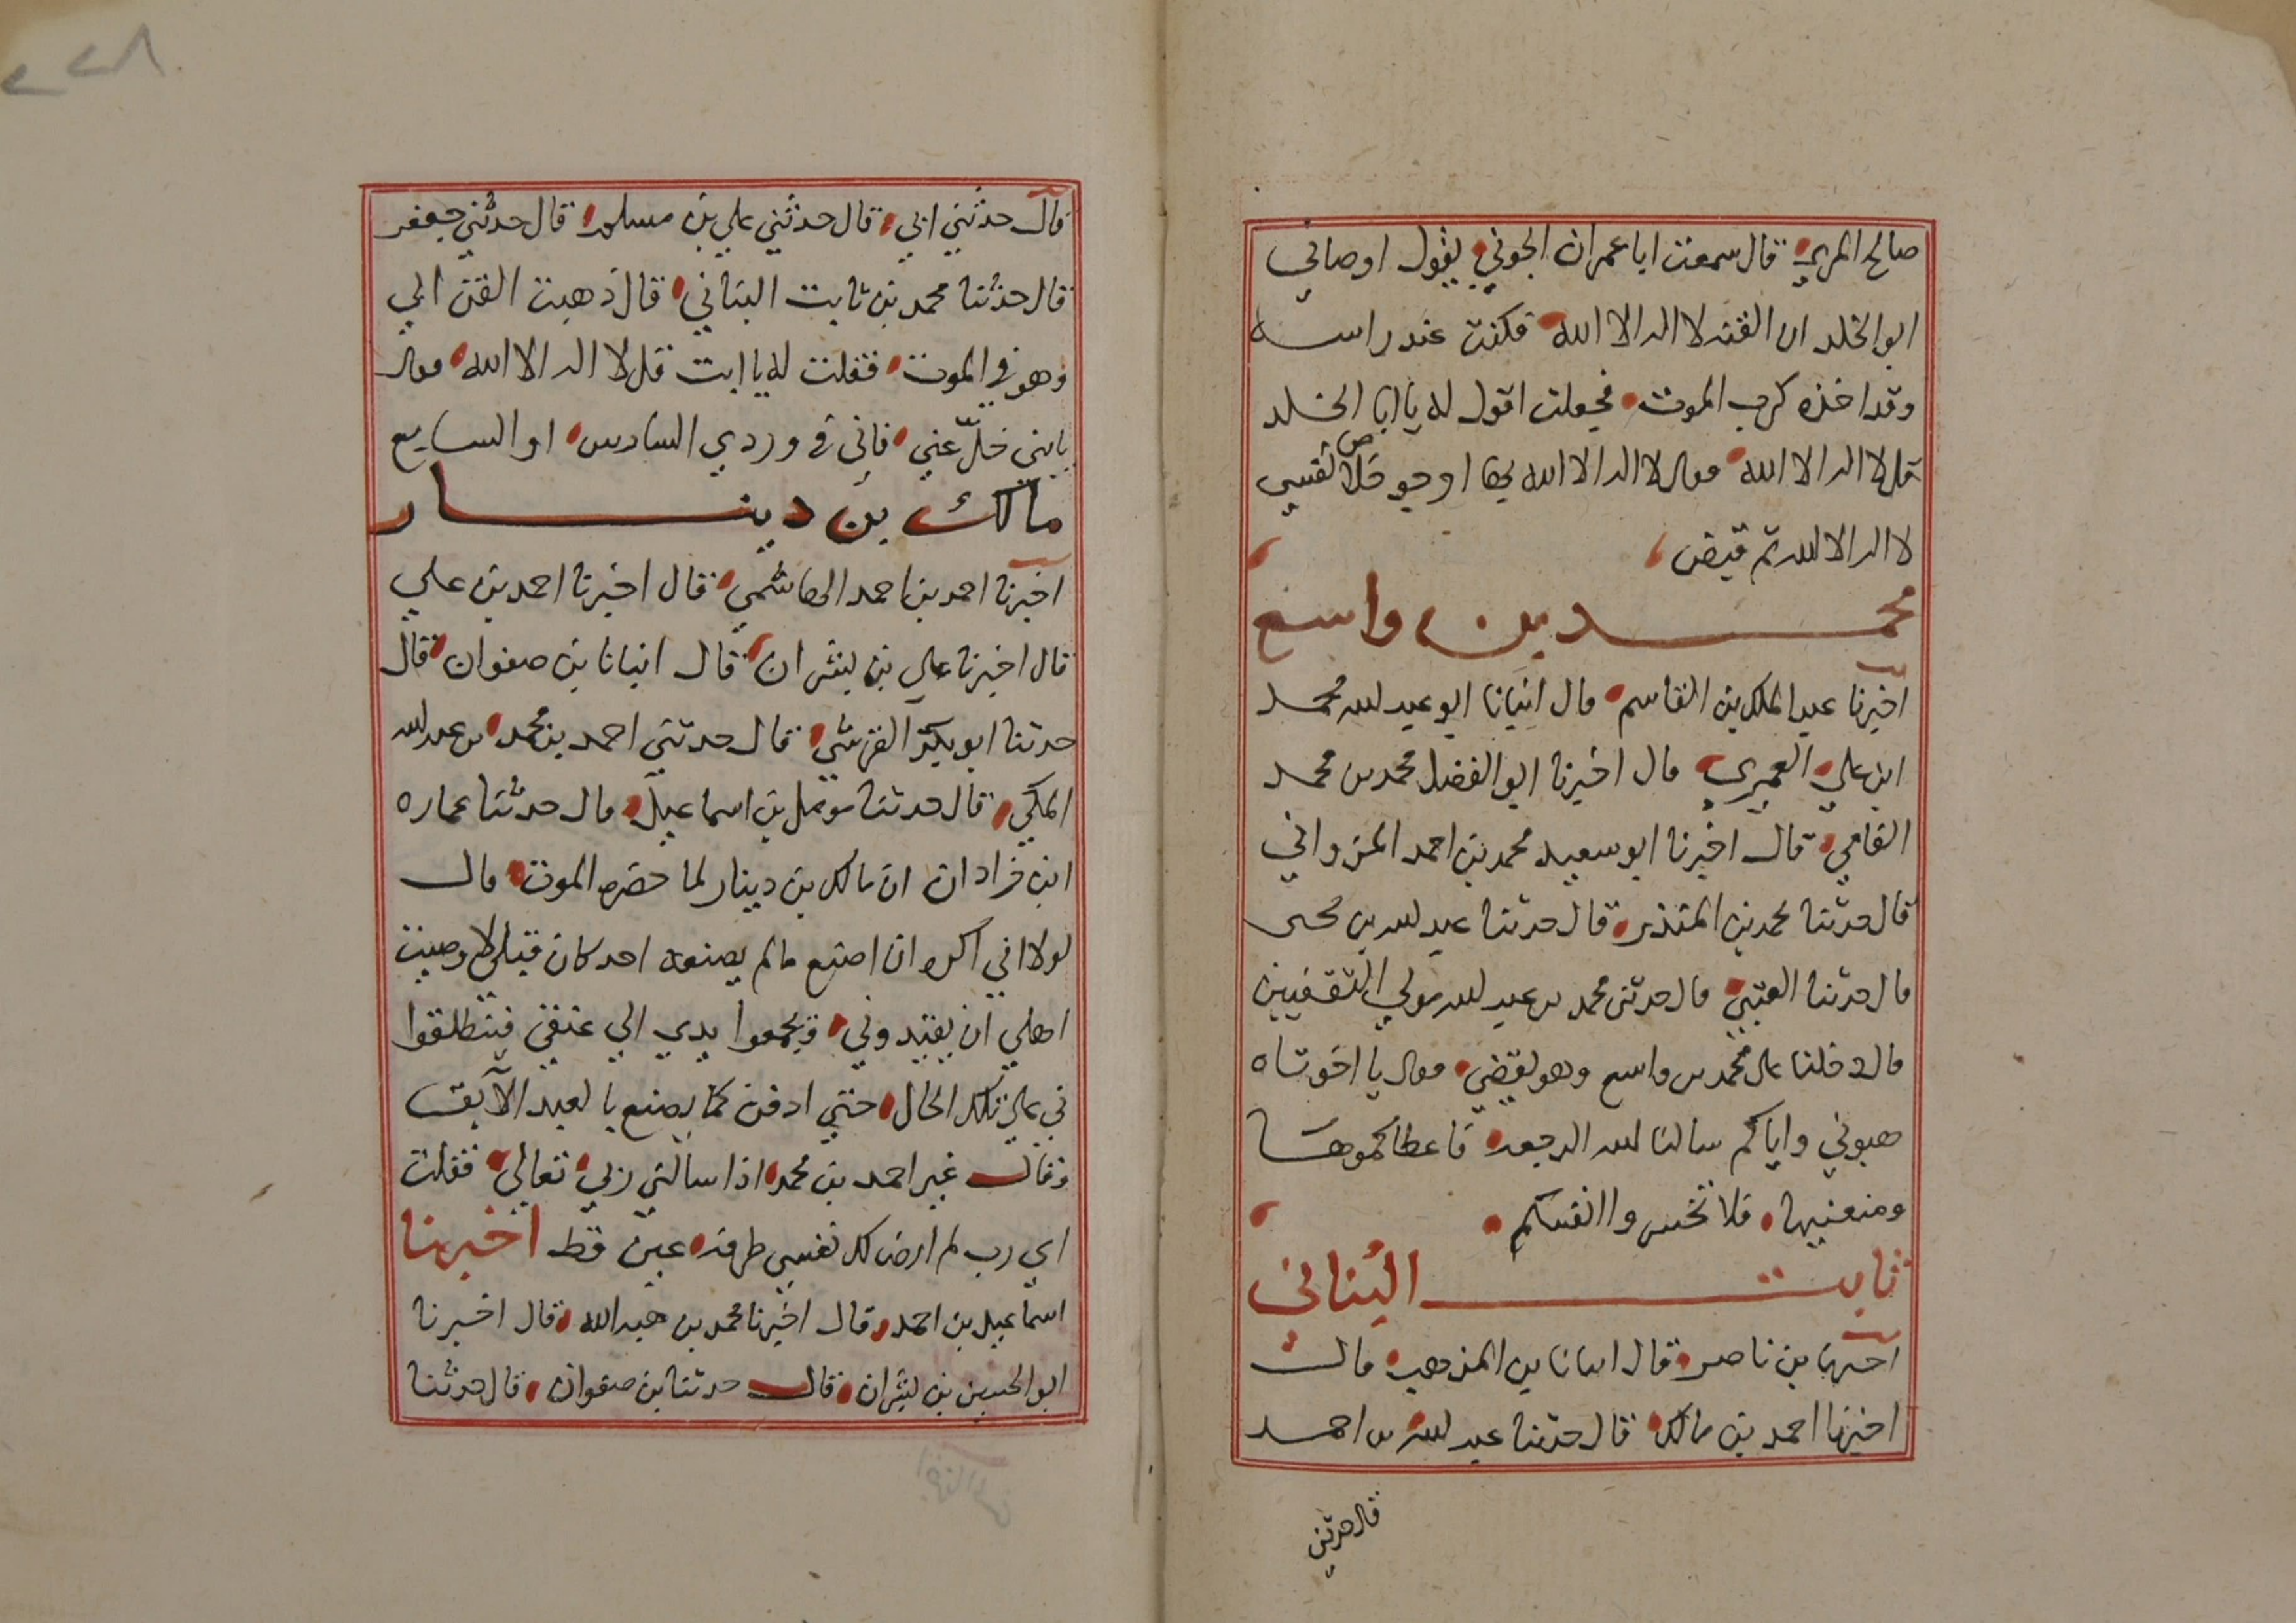 صالح المري قال سمعت ابا عمران الجوني يقول اوصاني
ابو الخلد ان القنه لا اله الا الله فكنت عند راسه
وقد اخذه كرب الموت فجعلت اقول له يا ابا الخلد
قل لا اله الا الله فقال لا اله الا الله بها ارجو خلاص نفسي
لا اله الا الله ثم قبض
محمد بن واسع
اخبرنا عبد الملك بن القاسم قال انبانا ابو عبد الله محمد
ابن علي العميري قال اخبرنا ابو الفضل محمد بن محمد
الفامي قال اخبرنا ابو سعيد محمد بن احمد المرواني
قال حدثنا محمد بن المنذر قال حدثنا عبد الله بن محمد
قال حدثنا العتبي قال حدثني محمد بن عبد الله مولي الثقفيين
قال دخلنا على محمد بن واسع وهو يقضي فقال يا اخوتاه
هبوني واياكم سالنا الله الرجعه فاعطاكموها
ومنعنيها فلا تخسروا انفسكم
ثابت البُناني
اخبرنا بن ناصر قال انبانا بن المذهب قال
اخبرنا احمد بن مالك قال حدثنا عبد الله بن احمد
قال حدثني
قال حدثني ابي قال حدثني علي بن مسلم قال حدثني جعفر
قال حدثنا محمد بن ثابت البناني قال ذهبت القن ابي
وهو في الموت فقلت له يا ابت قل لا اله الا الله فقال
يا بني خلّ عني فاني في وردي السادس او السابع
مالك بن دينار
اخبرنا احمد بن احمد الهاشمي قال اخبرنا احمد بن علي
قال اخبرنا علي بن بشران قال انبانا بن صفوان قال
حدثنا ابو بكر القرشي قال حدثني احمد بن محمد بن عبد الله
المكي قال حدثنا مومل بن اسماعيل قال حدثنا عماره
ابن زاذان ان مالك بن دينار لما حضره الموت قال
لولا اني اكره ان اصنع ما لم يصنعه احد كان قبلي لاوصيت
اهلي ان يقيدوني ويجمعوا يدي الي عنقي فينطلقوا
بي علي تلك الحال حتي ادفن كما يصنع بالعبد الآبق
وقال غير احمد بن محمد اذا سالني ربي تعالي فقلت
اي رب لم ارض لك نفسي طرفه عين قط اخبرنا
اسماعيل بن احمد قال اخبرنا محمد بن هبه الله قال اخبرنا
ابو الحسين بن بشران قال حدثنا بن صفوان قال حدثنا